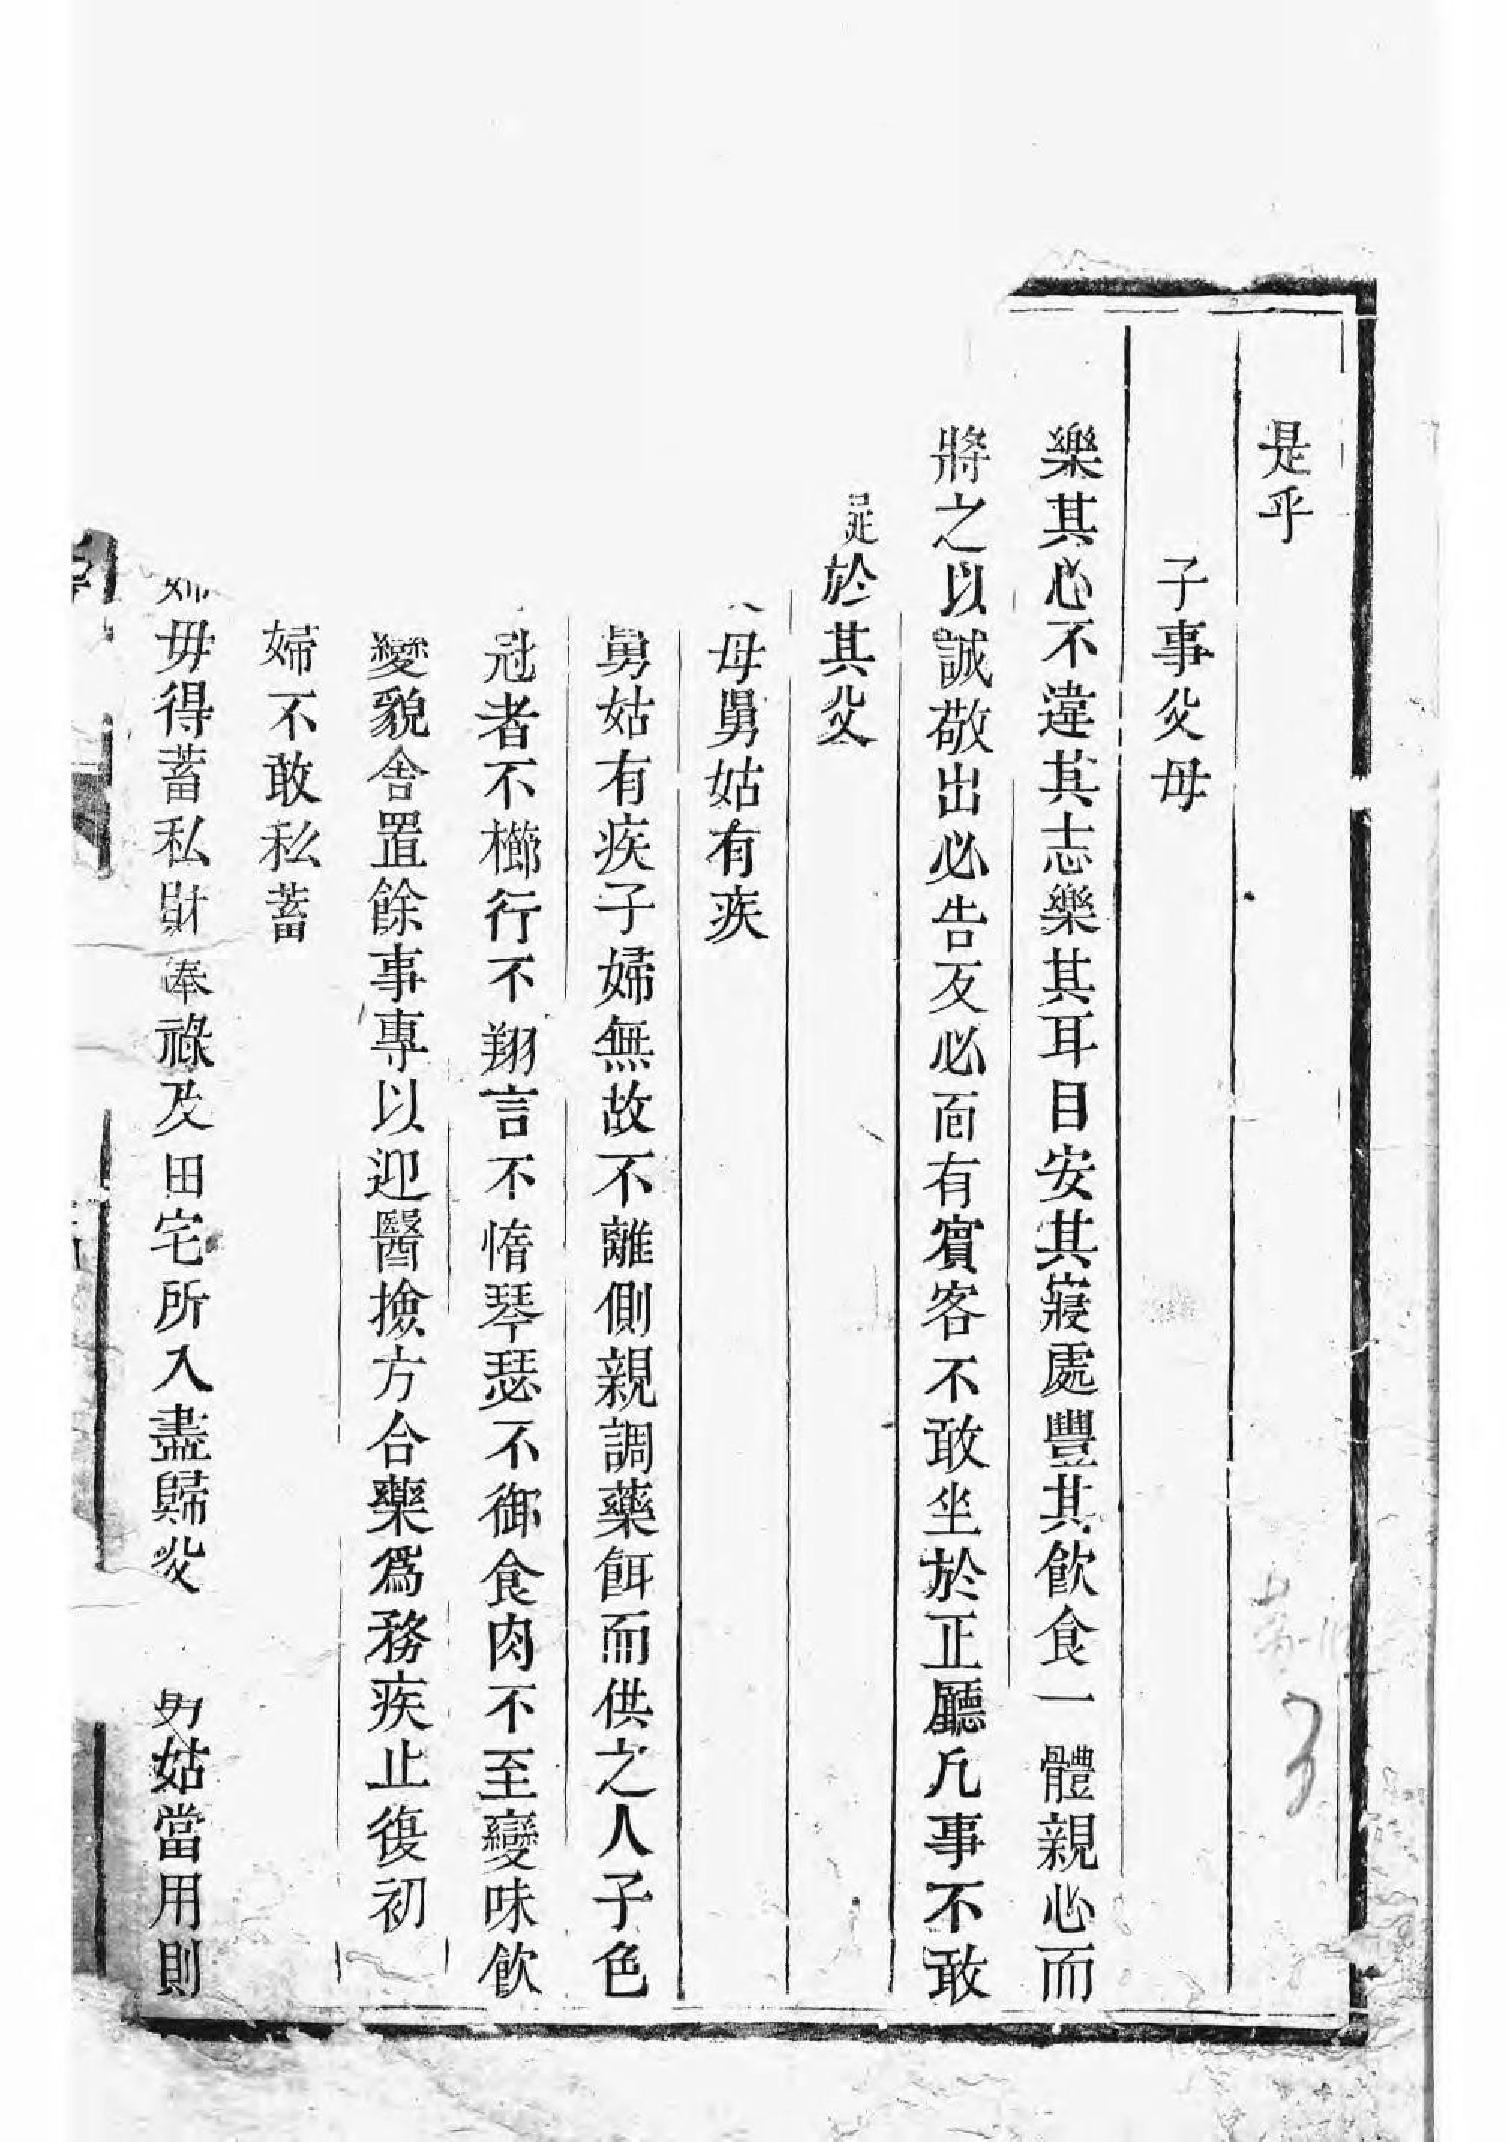 是乎
子事父母
樂其心不違其志樂其耳目安其寢處豐其飲食一體親心而
將之以誠敬出必告反必面有賓客不敢坐於正廳凡事不敢
於其父
母舅姑有疾
舅姑有疾子婦無故不離側親調藥餌而供之人子色
冠者不櫛行不翔言不惰琴瑟不御食肉不至變味飲
變貌舍置餘事專以迎醫撿方合藥爲務疾止復初
婦不敢私蓄
毋得蓄私財俸祿及田宅所入盡歸父
姑當用則